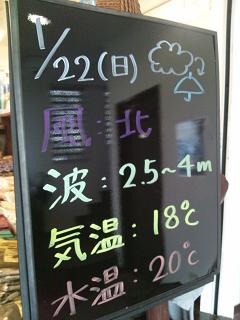 1/22(日)
風:北
波:2.5~4m
気温:18℃
水温:20℃